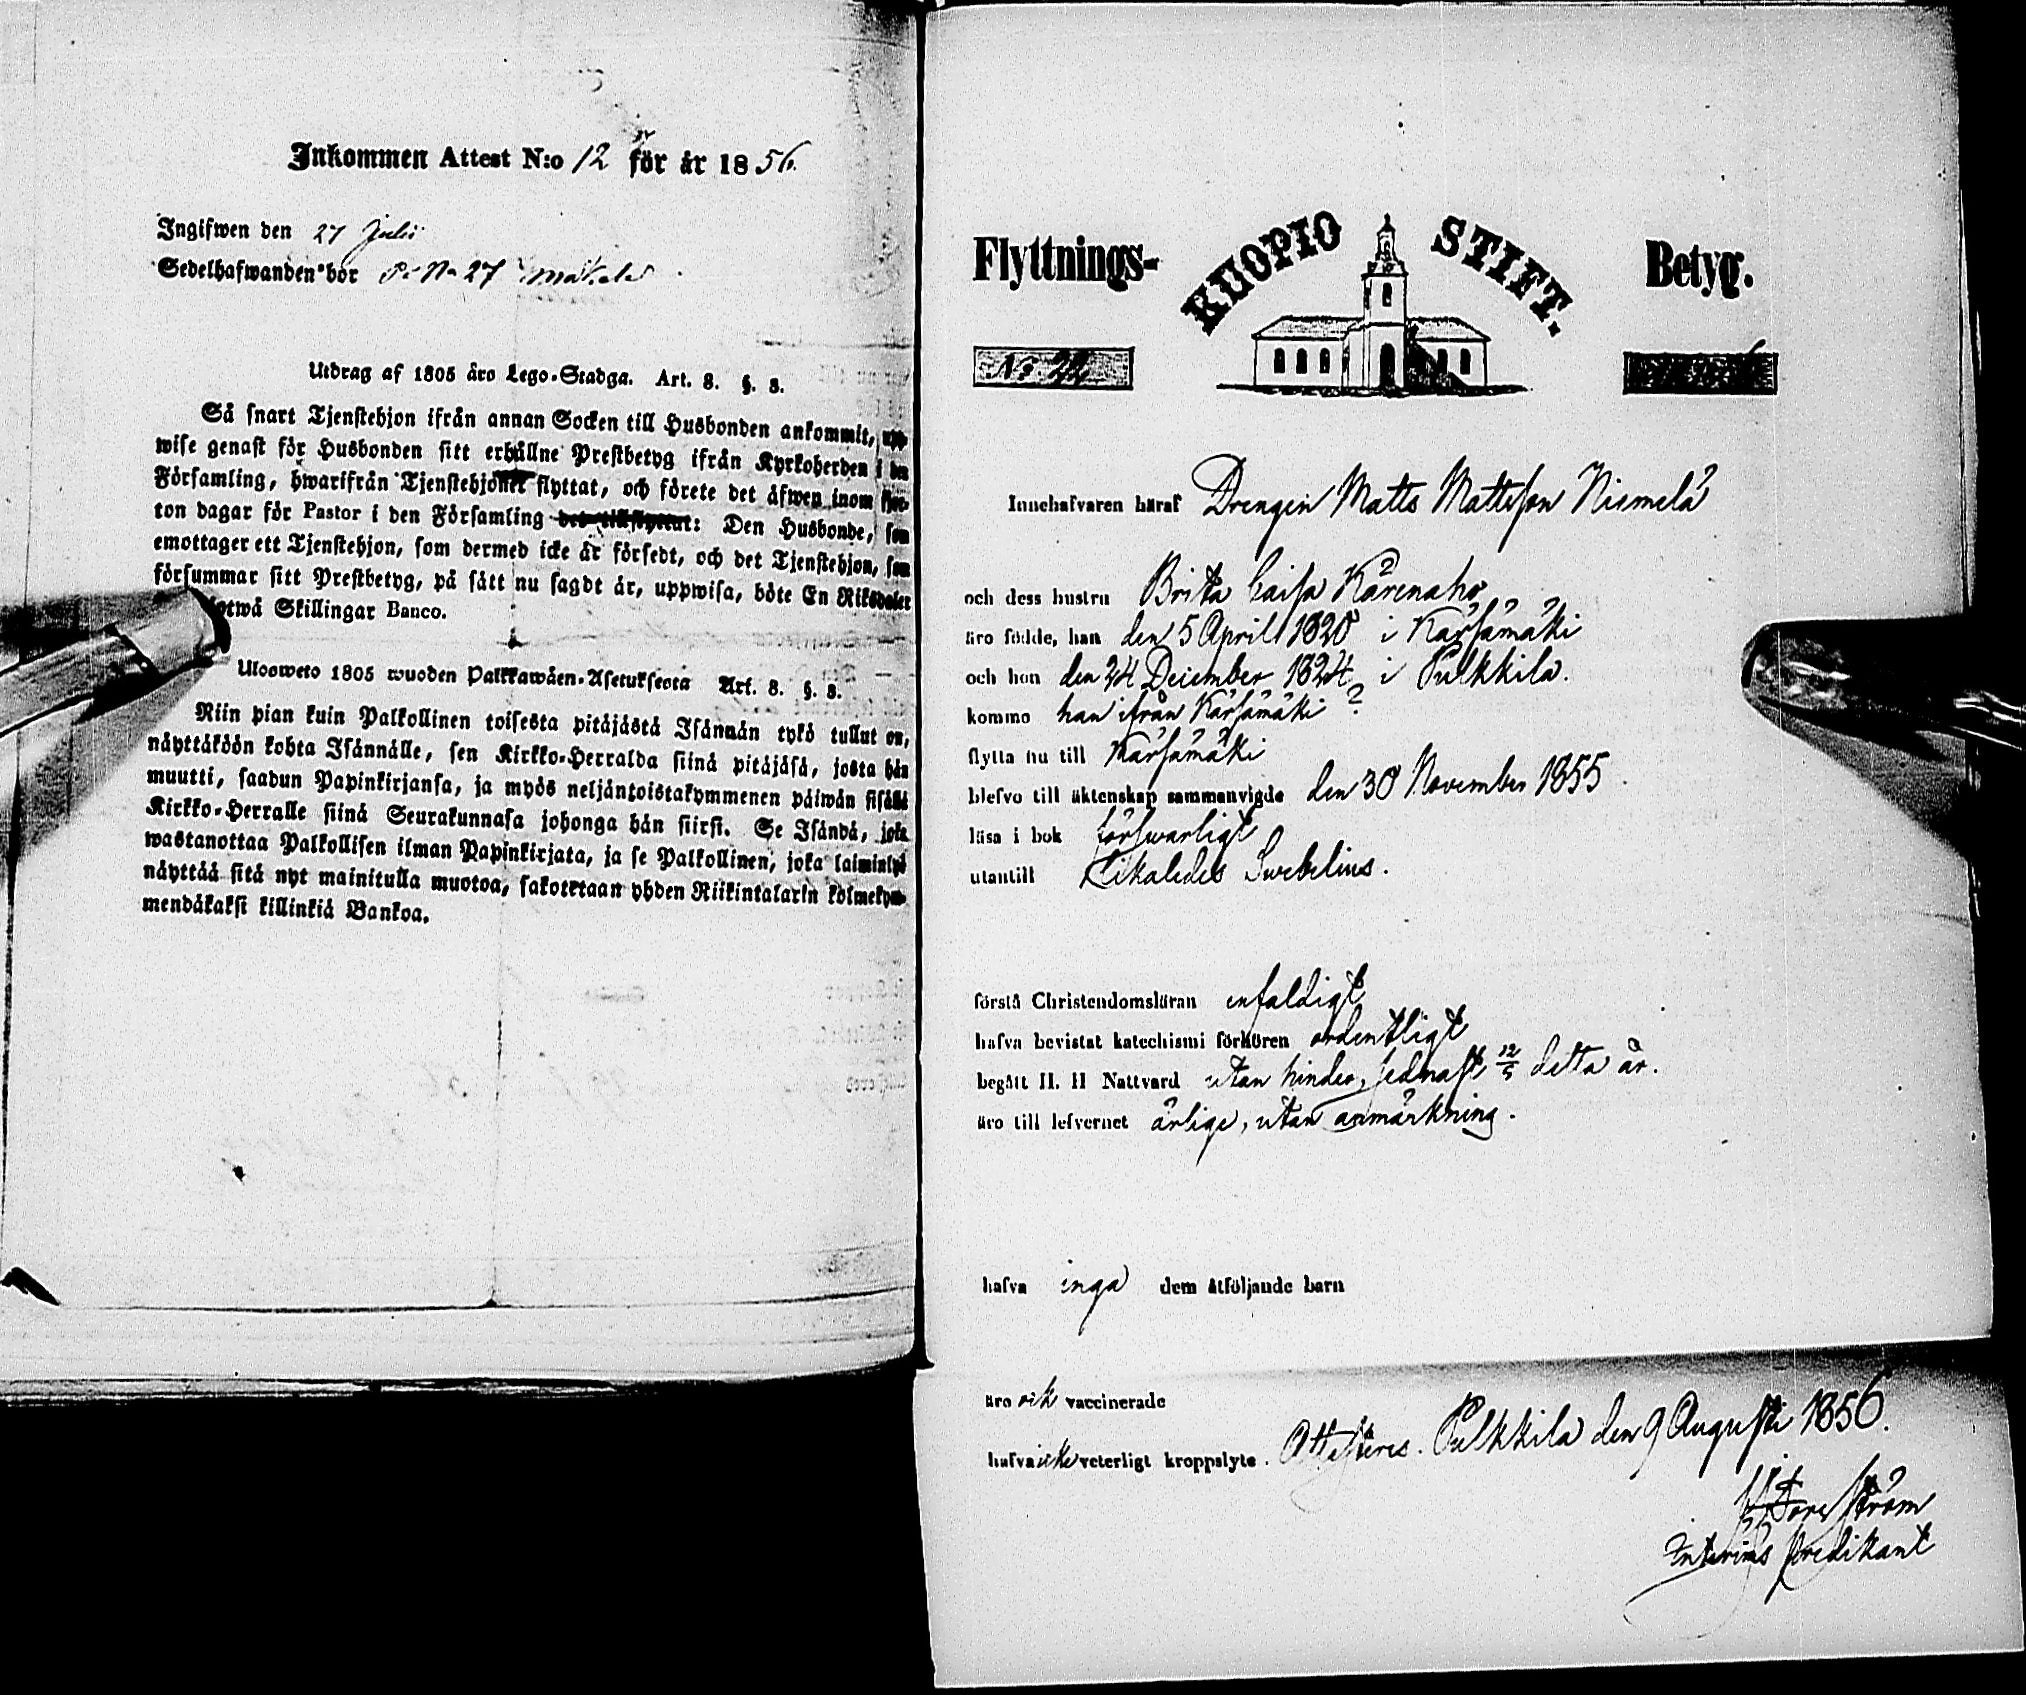 Inkommen Attest N:o 12 för år 1856.
Ingifwen den 27 Julii
Sedelhafwanden bor på No 27 Mäkelä
Utdrag af 1805 års Lego-Stadga. Art. 8. §. 8.
Så snart Tjenstehjon ifrån annan Socken till Husbonden ankommit, upp-
wise genast för Husbonden sitt erhållne Prestbetyg ifrån Kyrkoherden i den
Församling, hwarifrån Tjenstehjonet flyttat, och förete det äfwen inom fjor-
ton dagar för Pastor i den Församling det tillflyttat: Den Husbonde, som
emottager ett Tjenstehjon, som dermed icke är försedt, och det Tjenstehjon, som
försummar sitt Prestbetyg, på sätt nu sagdt är, uppwisa, böte En Riksdaler
tiotwå Skillingar Banco.
Ulosweto 1805 wuoden Palkkawäen-Asetuksesta Art. 8. §. 8.
Niin pian kuin Palkollinen toisesta pitäjästä Isännän tykö tullut on,
näyttäköön kohta Isännälle, sen Kirkko-Herralda siinä pitäjäsä, josta hän
muutti, saadun Papinkirjansa, ja myös neljäntoistakymmenen päiwän sisällä
Kirkko-Herralle siinä Seurakunnasa johonga hän siirsi. Se Isändä, joka
wastanottaa Palkollisen ilman Papinkirjata, ja se Palkollinen, joka laiminlyö
näyttää sitä nyt mainitulla muotoa, sakotetaan yhden Riikintalarin kolmekym-
mendäkaksi killinkiä Bankoa.
Flyttnings- KUOPIO STIFT. Betyg.
No 22
Innehafvaren häraf Drengen Matts Mattsson Niemelä
och dess hustru Brita Caisa Kärenaho
äro födde, han den 5 April 1820 i Kärsämäki
och hon den 24 December 1824 i Pulkkila.
kommo han ifrån Kärsämäki ?
flytta nu till Kärsämäki
blefvo till äktenskap sammanvigde den 30 November 1855
läsa i bok försvarligt
utantill Likaledes Swebelius.
förstå Christendomsläran enfaldigt
hafva bevistat katechismi förhören ordentligt
begått H. H Nattvard utan hinder, sednast 12/5 detta år.
äro till lefvernet ärlige, utan anmärkning.
hafva inga dem åtföljande barn
äro ock vaccinerade
hafva icke veterligt kroppslyte. Attesteras. Pulkkila den 9 Augusti 1856.
Interims predikant